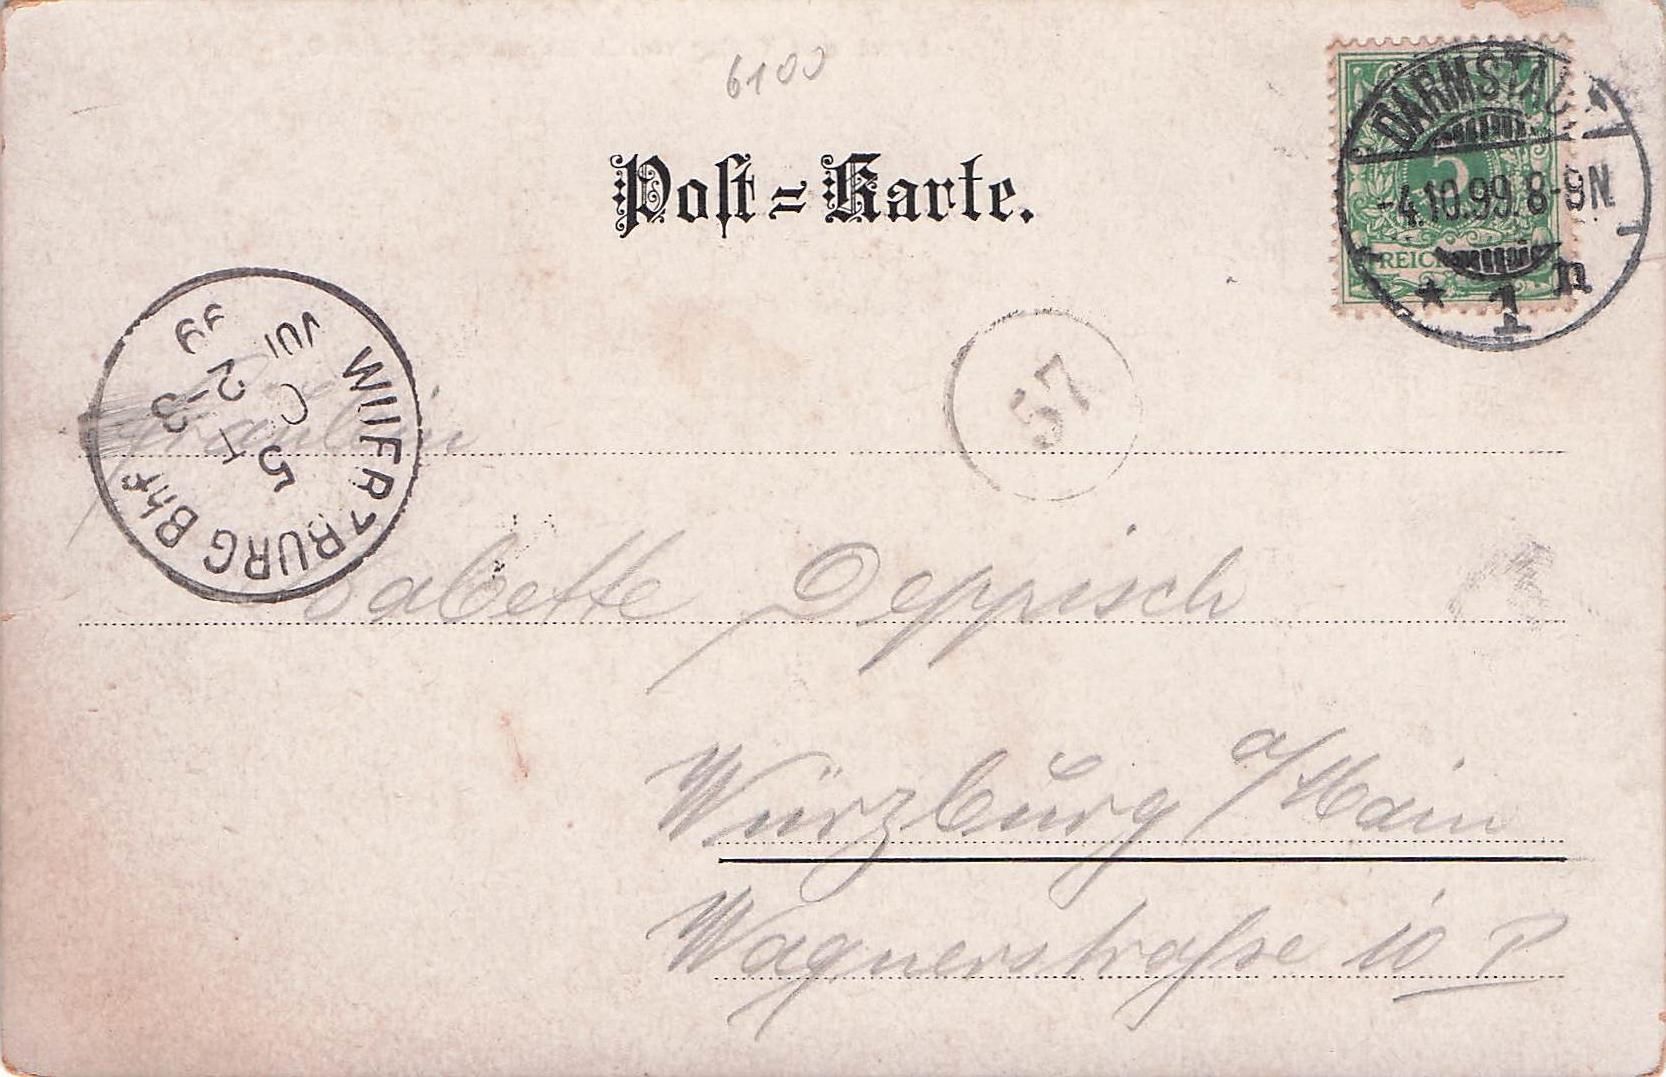 6100
Post=Karte.
DARMSTADT
5
-4.10.99.8-9N
REICHSPOST
* 1 n
WUERZBURG Bhf
VIII
5 OCT
2-3
99
57
Fräulein
Babette Deppisch
Würzburg a/Main
Wagnerstraße 10 P